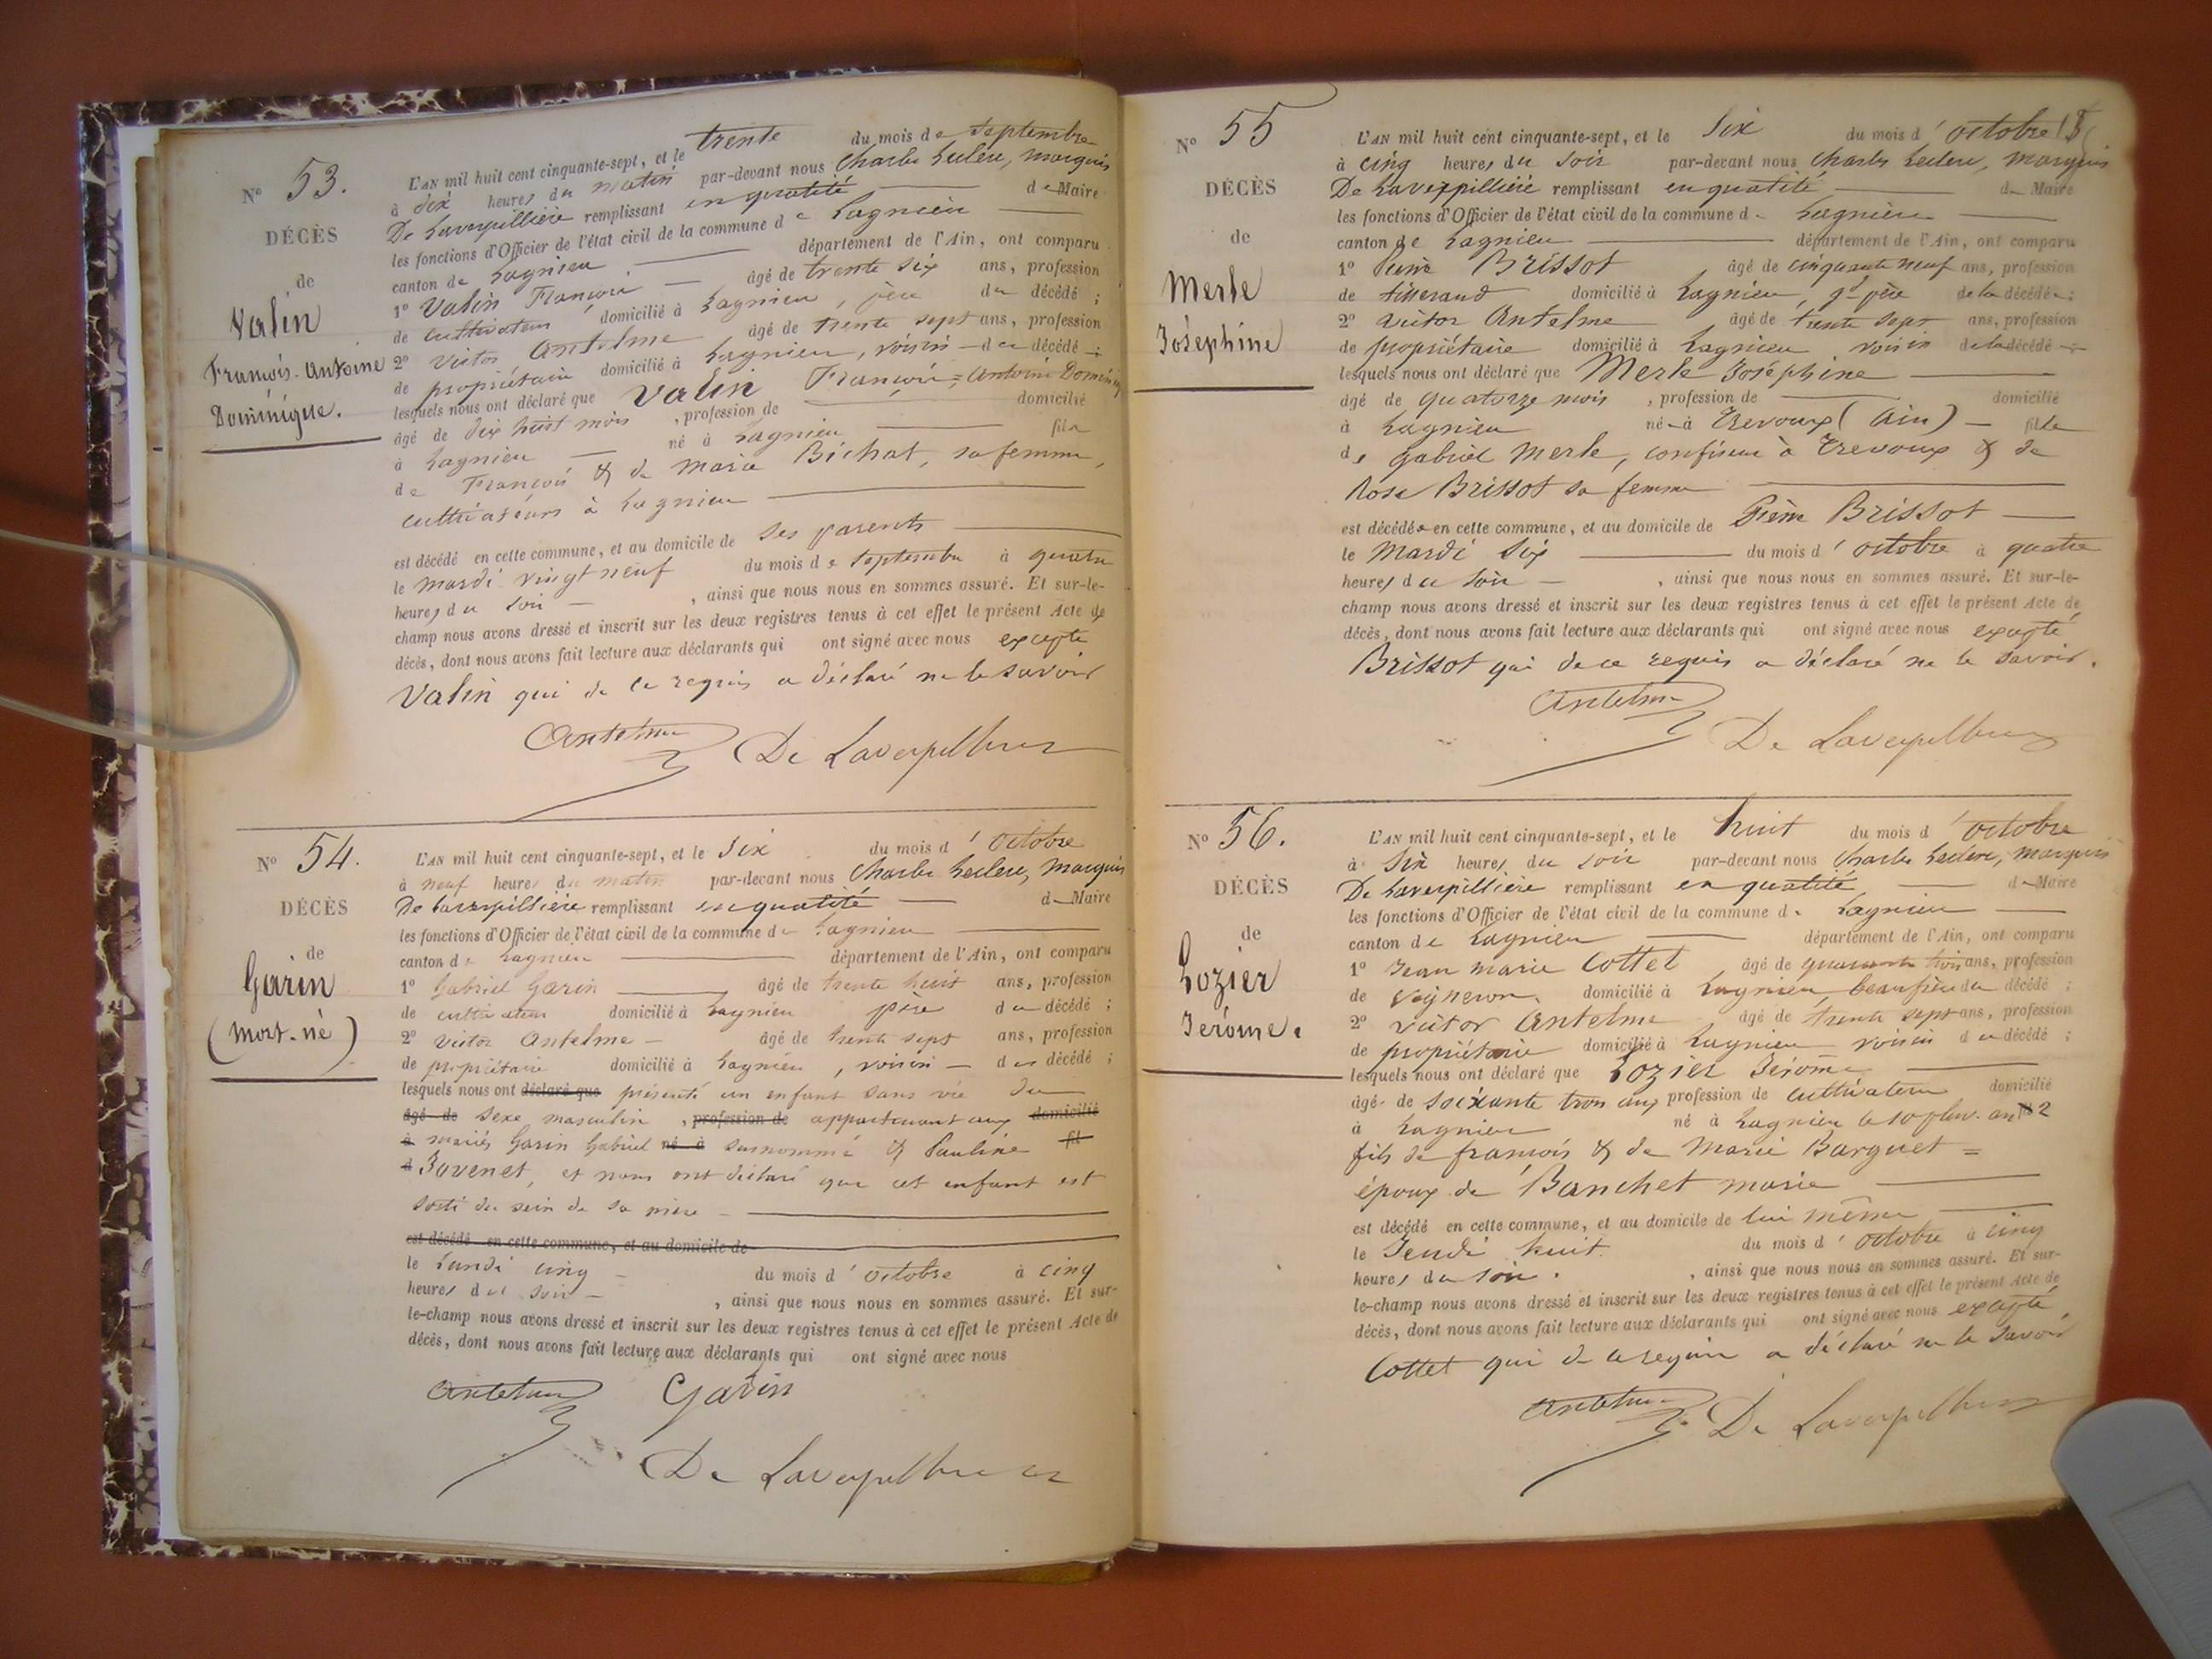 N° 53.
DÉCÈS
de
Valin
François-Antoine
Dominique.
L'AN mil huit cent cinquante-sept, et le trente du mois de septembre
à dix heures du matin par-devant nous Charles Leclerc, marquis
De Laverpillière remplissant en qualité de Maire
les fonctions d'Officier de l'état civil de la commune de Lagnieu
canton de Lagnieu département de l'Ain, ont comparu
1° Valin François âgé de trente six ans, profession
de cultivateur domicilié à Lagnieu, père du décédé ;
2° Victor Antelme âgé de trente sept ans, profession
de propriétaire domicilié à Lagnieu, voisin du décédé ;
lesquels nous ont déclaré que Valin François-Antoine Dominique
âgé de dix huit mois, profession de domicilié
à Lagnieu né à Lagnieu fils
de François & de Marie Bichat, sa femme,
cultivateurs à Lagnieu
est décédé en cette commune, et au domicile de ses parents
le mardi vingt neuf du mois de septembre à quatre
heures du soir, ainsi que nous nous en sommes assuré. Et sur-le-
champ nous avons dressé et inscrit sur les deux registres tenus à cet effet le présent Acte de
décès, dont nous avons fait lecture aux déclarants qui ont signé avec nous excepté
Valin qui de ce requis a déclaré ne le savoir
Antelme De Laverpilliere
N° 54.
DÉCÈS
de
Garin
(mort-né)
L'AN mil huit cent cinquante-sept, et le six du mois d'octobre
à neuf heures du matin par-devant nous Charles Leclerc, marquis
De Laverpillière remplissant en qualité de Maire
les fonctions d'Officier de l'état civil de la commune de Lagnieu
canton de Lagnieu département de l'Ain, ont comparu
1° Gabriel Garin âgé de trente huit ans, profession
de cultivateur domicilié à Lagnieu père du décédé ;
2° Victor Antelme âgé de trente sept ans, profession
de propriétaire domicilié à Lagnieu, voisin du décédé ;
lesquels nous ont déclaré que présenté un enfant sans vie du
âgé de sexe masculin, profession de appartenant aux domicilié
à mariés Garin Gabriel né à surnommé & Pauline fil
d Jovenet, et nous ont déclaré que cet enfant est
sorti du sein de sa mère
est décédé en cette commune, et au domicile de
le Lundi cinq du mois d'octobre à cinq
heures du soir, ainsi que nous nous en sommes assuré. Et sur-
le-champ nous avons dressé et inscrit sur les deux registres tenus à cet effet le présent Acte de
décès, dont nous avons fait lecture aux déclarants qui ont signé avec nous
Antelme Garin
De Laverpilliere
N° 55
DÉCÈS
de
Merle
Joséphine
L'AN mil huit cent cinquante-sept, et le six du mois d'octobre
à cinq heures du soir par-devant nous Charles Leclerc, marquis
De Laverpillière remplissant en qualité de Maire
les fonctions d'Officier de l'état civil de la commune de Lagnieu
canton de Lagnieu département de l'Ain, ont comparu
1° Pierre Brissot âgé de cinquante neuf ans, profession
de tisserand domicilié à Lagnieu, gd père de la décédée ;
2° Victor Antelme âgé de trente sept ans, profession
de propriétaire domicilié à Lagnieu voisin de la décédée
lesquels nous ont déclaré que Merle Joséphine
âgé de quatorze mois, profession de domicilié
à Lagnieu né à Trevoux (Ain) fille
de Gabriel Merle, confiseur à Trevoux & de
Rose Brissot sa femme
est décédée en cette commune, et au domicile de Pierre Brissot
le Mardi six du mois d'octobre à quatre
heures du soir, ainsi que nous nous en sommes assuré. Et sur-le-
champ nous avons dressé et inscrit sur les deux registres tenus à cet effet le présent Acte de
décès, dont nous avons fait lecture aux déclarants qui ont signé avec nous excepté
Brissot qui de ce requis a déclaré ne le savoir.
Antelme
De Laverpilliere
N° 56.
DÉCÈS
de
Lozier
Jérôme.
L'AN mil huit cent cinquante-sept, et le huit du mois d'octobre
à six heures du soir par-devant nous Charles Leclerc, marquis
De Laverpillière remplissant en qualité de Maire
les fonctions d'Officier de l'état civil de la commune de Lagnieu
canton de Lagnieu département de l'Ain, ont comparu
1° Jean marie Cottet âgé de quarante trois ans, profession
de vigneron. domicilié à Lagnieu, beau frère du décédé ;
2° Victor Antelme âgé de trente sept ans, profession
de propriétaire domicilié à Lagnieu voisin du décédé ;
lesquels nous ont déclaré que Lozier Jérôme
âgé de soixante trois ans profession de cultivateur domicilié
à Lagnieu né à Lagnieu le 10 pluv. an 2
fils de françois & de Marie Barquet =
époux de Banchet marie
est décédé en cette commune, et au domicile de lui même
le Jeudi huit du mois d'octobre à cinq
heures du soir., ainsi que nous nous en sommes assuré. Et sur-
le-champ nous avons dressé et inscrit sur les deux registres tenus à cet effet le présent Acte de
décès, dont nous avons fait lecture aux déclarants qui ont signé avec nous excepté
Cottet qui de ce requis a déclaré ne le savoir
Antelme De Laverpilliere